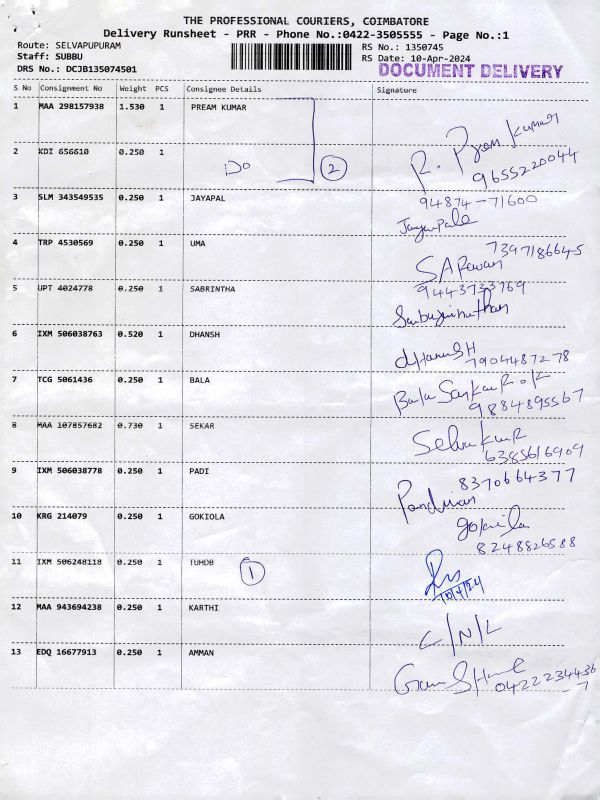 THE PROFESSIONAL COURIERS, COIMBATORE
Delivery Runsheet - PRR - Phone No.:0422-3505555 - Page No.:1
Route: SELVAPUPURAM RS No.: 1350745
Staff: SUBBU RS Date: 10-Apr-2024
DRS No.: DCJB135074501 DOCUMENT DELIVERY
S No Consignment No Weight PCS Consignee Details Signature
1 MAA 298157938 1.530 1 PREAM KUMAR
R. Prem Kumar
9655220044
2 KDI 656610 0.250 1 Do 2
3 SLM 343549535 0.250 1 JAYAPAL 94874-71600
4 TRP 4530569 0.250 1 UMA 7397186645
5 UPT 4024778 0.250 1 SABRINTHA 9443733769
6 IXM 506038763 0.520 1 DHANSH
dHanusH
7904487278
7 TCG 5061436 0.250 1 BALA
9884895567
8 MAA 107857682 0.730 1 SEKAR
6385616909
9 IXM 506038778 0.250 1 PADI 8370664377
10 KRG 214079 0.250 1 GOKIOLA
8248826588
11 IXM 506248118 0.250 1 TUHDB 1
10/4/24
12 MAA 943694238 0.250 1 KARTHI C/N/L
13 EDQ 16677913 0.250 1 AMMAN